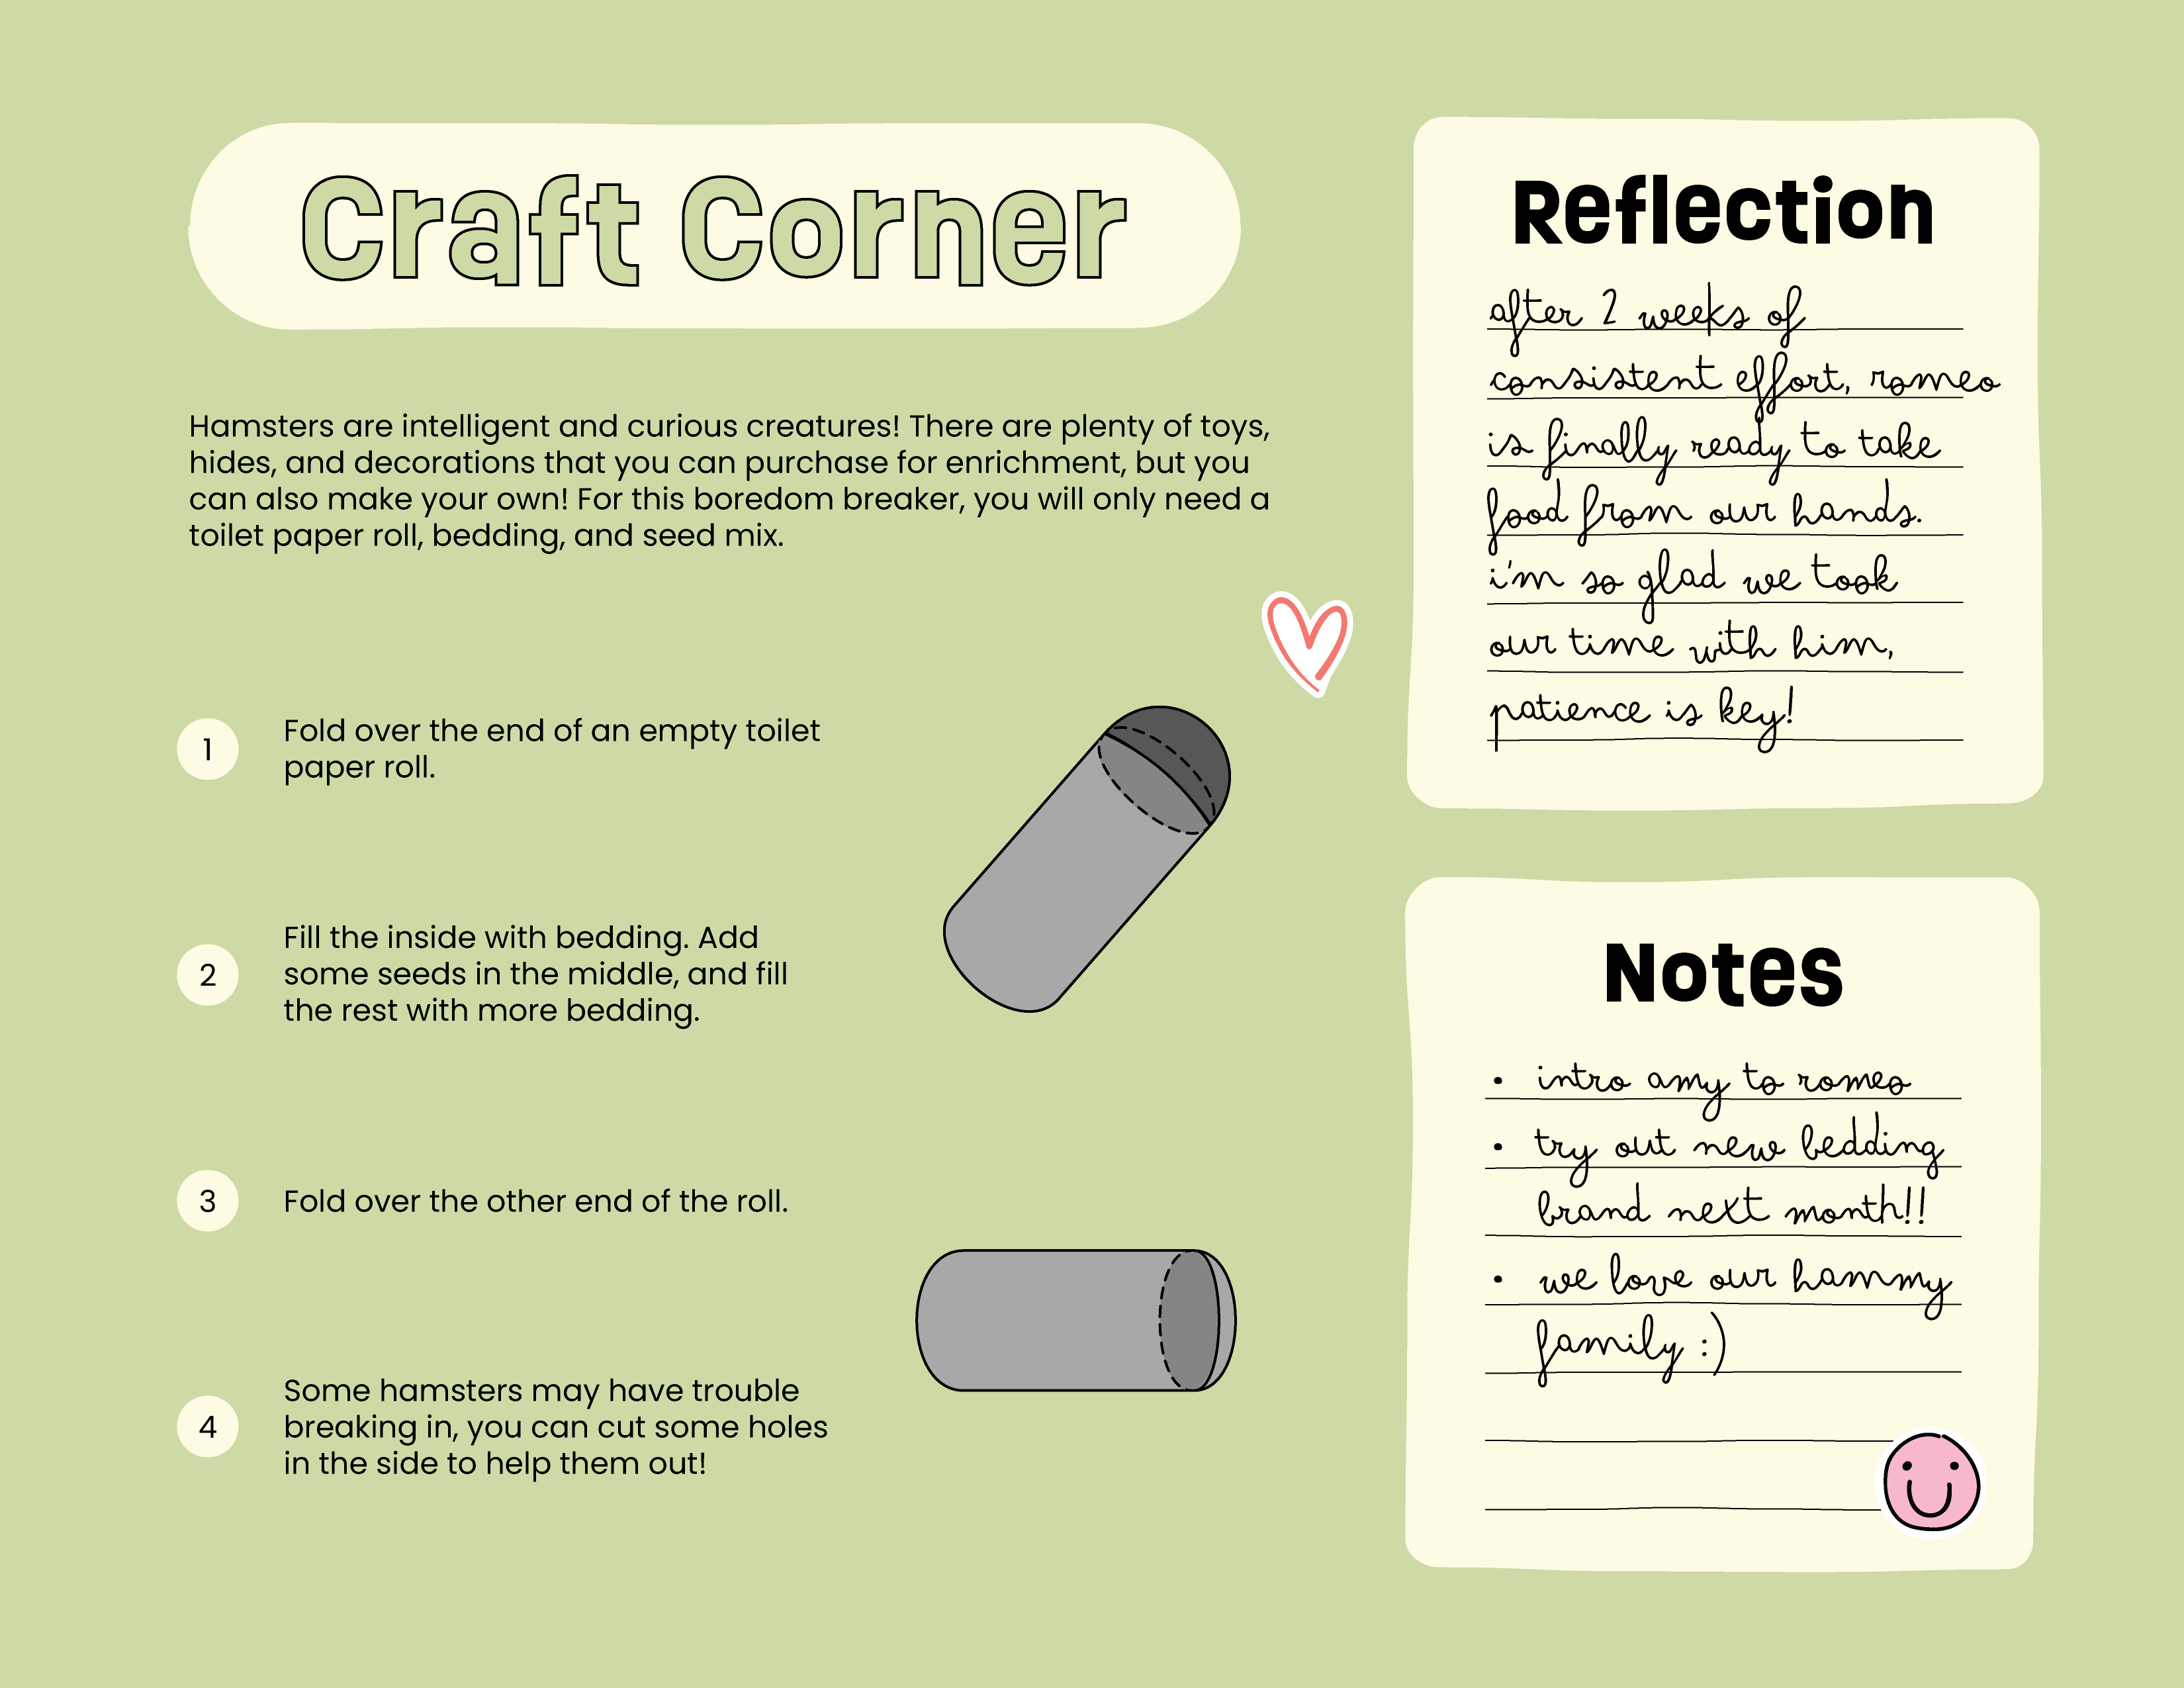 Craft Corner
Hamsters are intelligent and curious creatures! There are plenty of toys,
hides, and decorations that you can purchase for enrichment, but you
can also make your own! For this boredom breaker, you will only need a
toilet paper roll, bedding, and seed mix.
1
Fold over the end of an empty toilet
paper roll.
2
Fill the inside with bedding. Add
some seeds in the middle, and fill
the rest with more bedding.
3
Fold over the other end of the roll.
4
Some hamsters may have trouble
breaking in, you can cut some holes
in the side to help them out!
Reflection
after 2 weeks of
consistent effort, romeo
is finally ready to take
food from our hands.
i'm so glad we took
our time with him,
patience is key!
Notes
• intro amy to romeo
• try out new bedding
brand next month!!
• we love our hammy
family :)